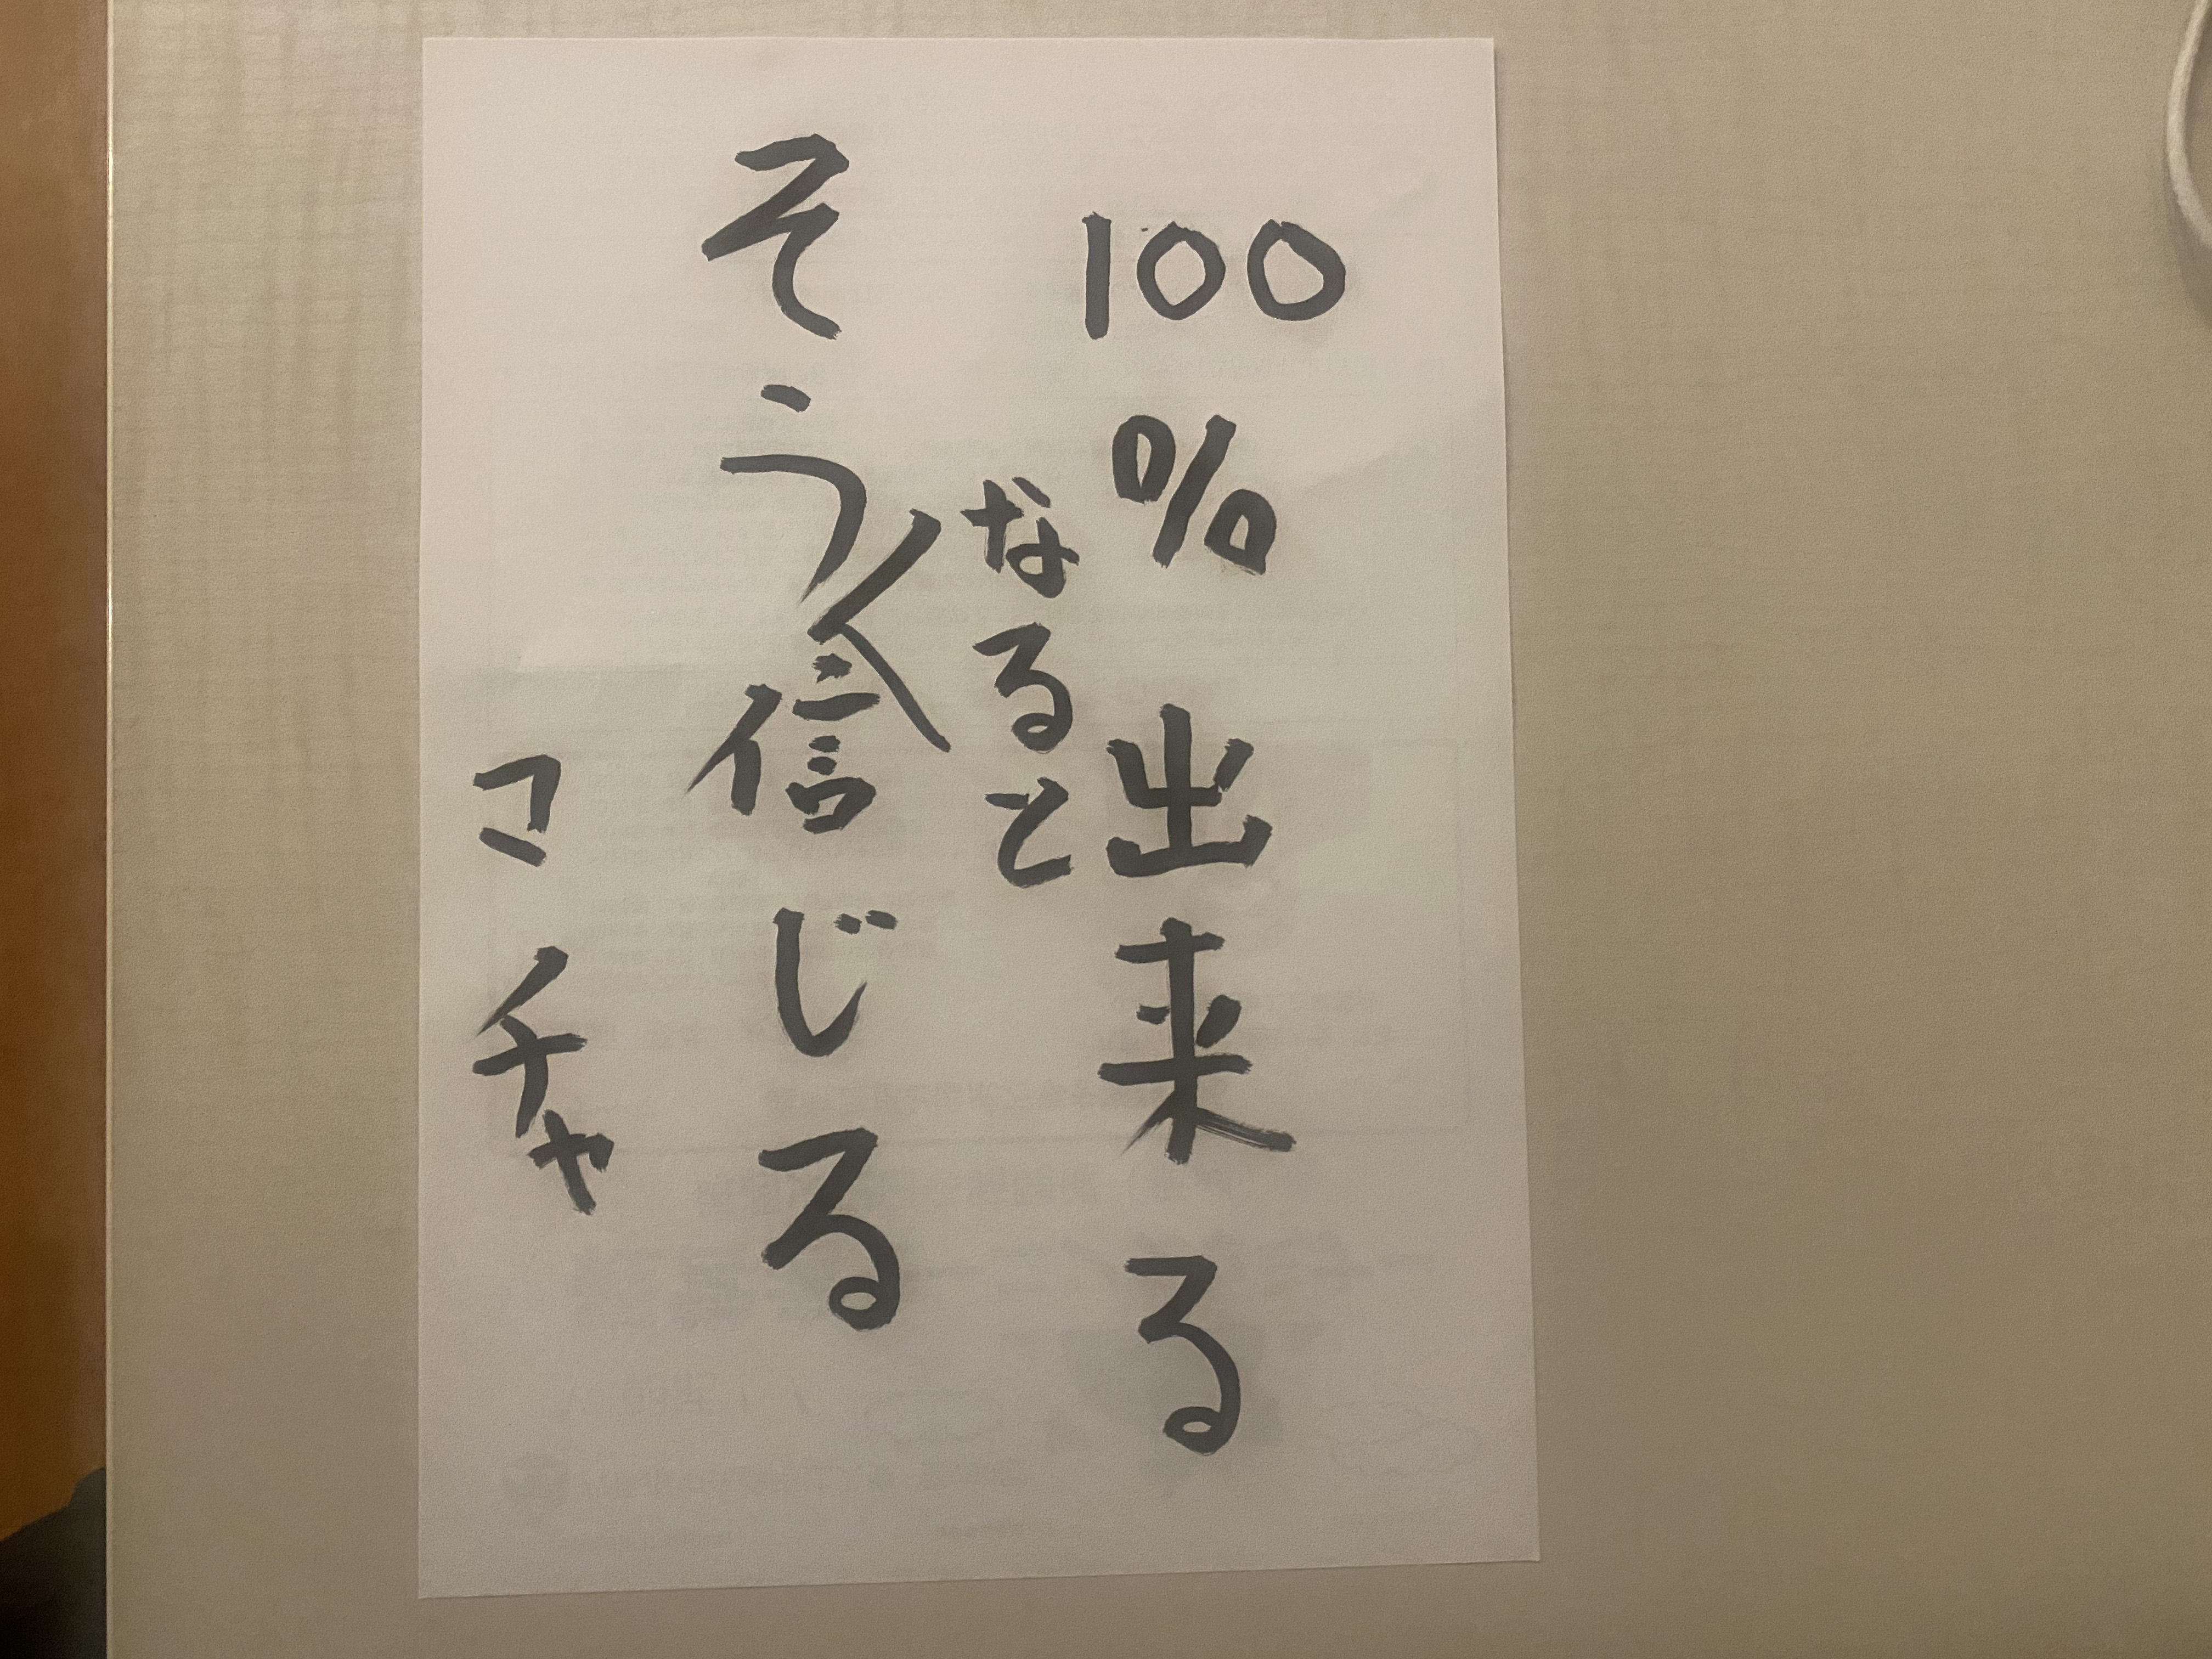 100%出来る
そうなると信じる
マチャ